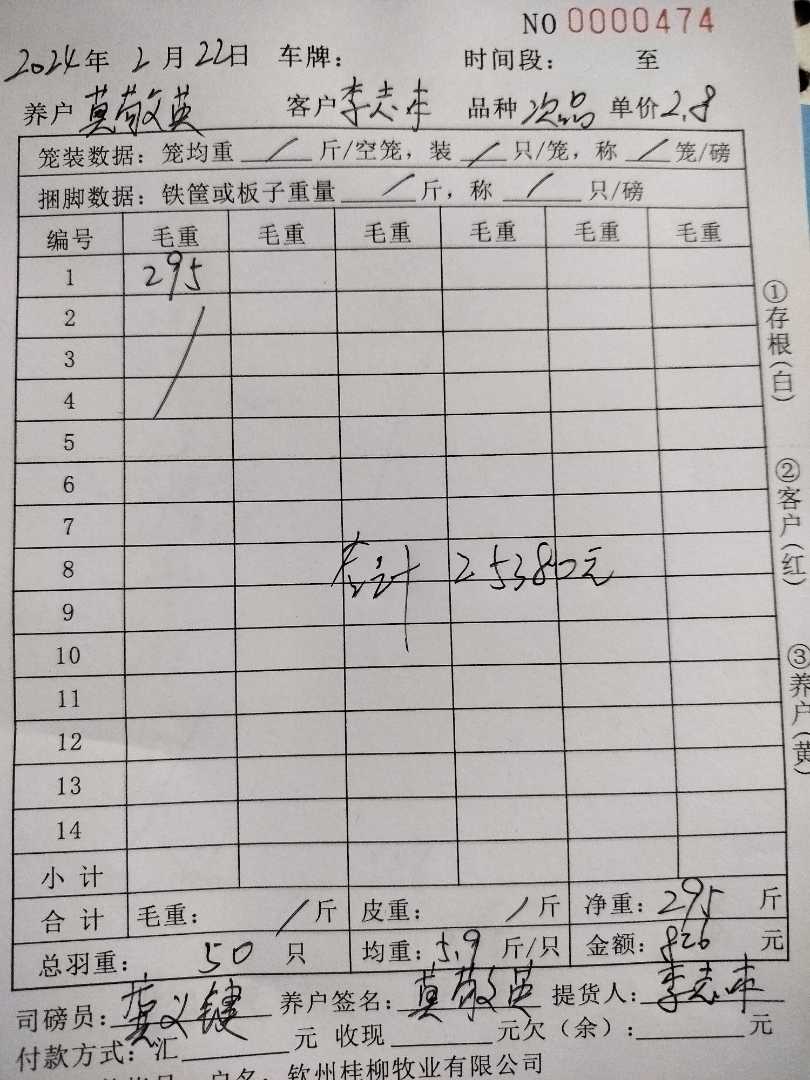 NO 0000474
2024年 2月22日 车牌： 时间段： 至
养户 莫敬英 客户 李志 品种 次品 单价 2.8
笼装数据：笼均重 / 斤/空笼，装 / 只/笼，称 / 笼/磅
捆脚数据：铁筐或板子重量 / 斤，称 / 只/磅
编号 毛重 毛重 毛重 毛重 毛重 毛重
1 295
2
3
4
5
6
7
8 合计 25380元
9
10
11
12
13
14
小计
合计 毛重： / 斤 皮重： / 斤 净重：295 斤
总羽重： 50 只 均重：5.9 斤/只 金额：826 元
司磅员： 义键 养户签名：莫敬英 提货人：李志
付款方式：汇 元 收现 元欠（余）： 元
户名：钦州桂柳牧业有限公司
①存根（白）
②客户（红）
③养户（黄）